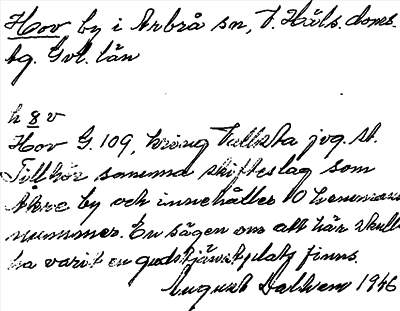 Hov by i Arbrå sn, V. Häls. doms.
tg. Gvl. län
h 8 v
Hov G. 109, kring Vallsta jvg. st.
Tillhör samma skifteslag som
Åkre by och innehåller 10 hemmans
nummer. En sägen om att här skulle
ha varit en gudstjänstplats finns.
August Dalhem 1946